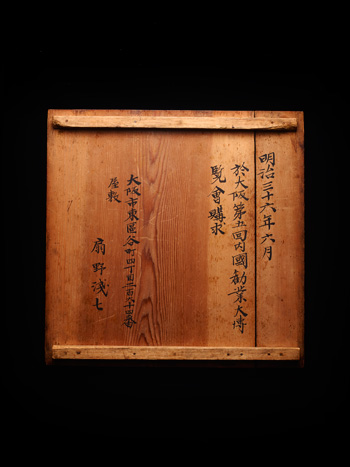 明治三十六年六月
於大阪第五回内國勧業大博
覧會購求
大阪市東區谷町四丁目二百八十四番
屋敷
扇野淺七